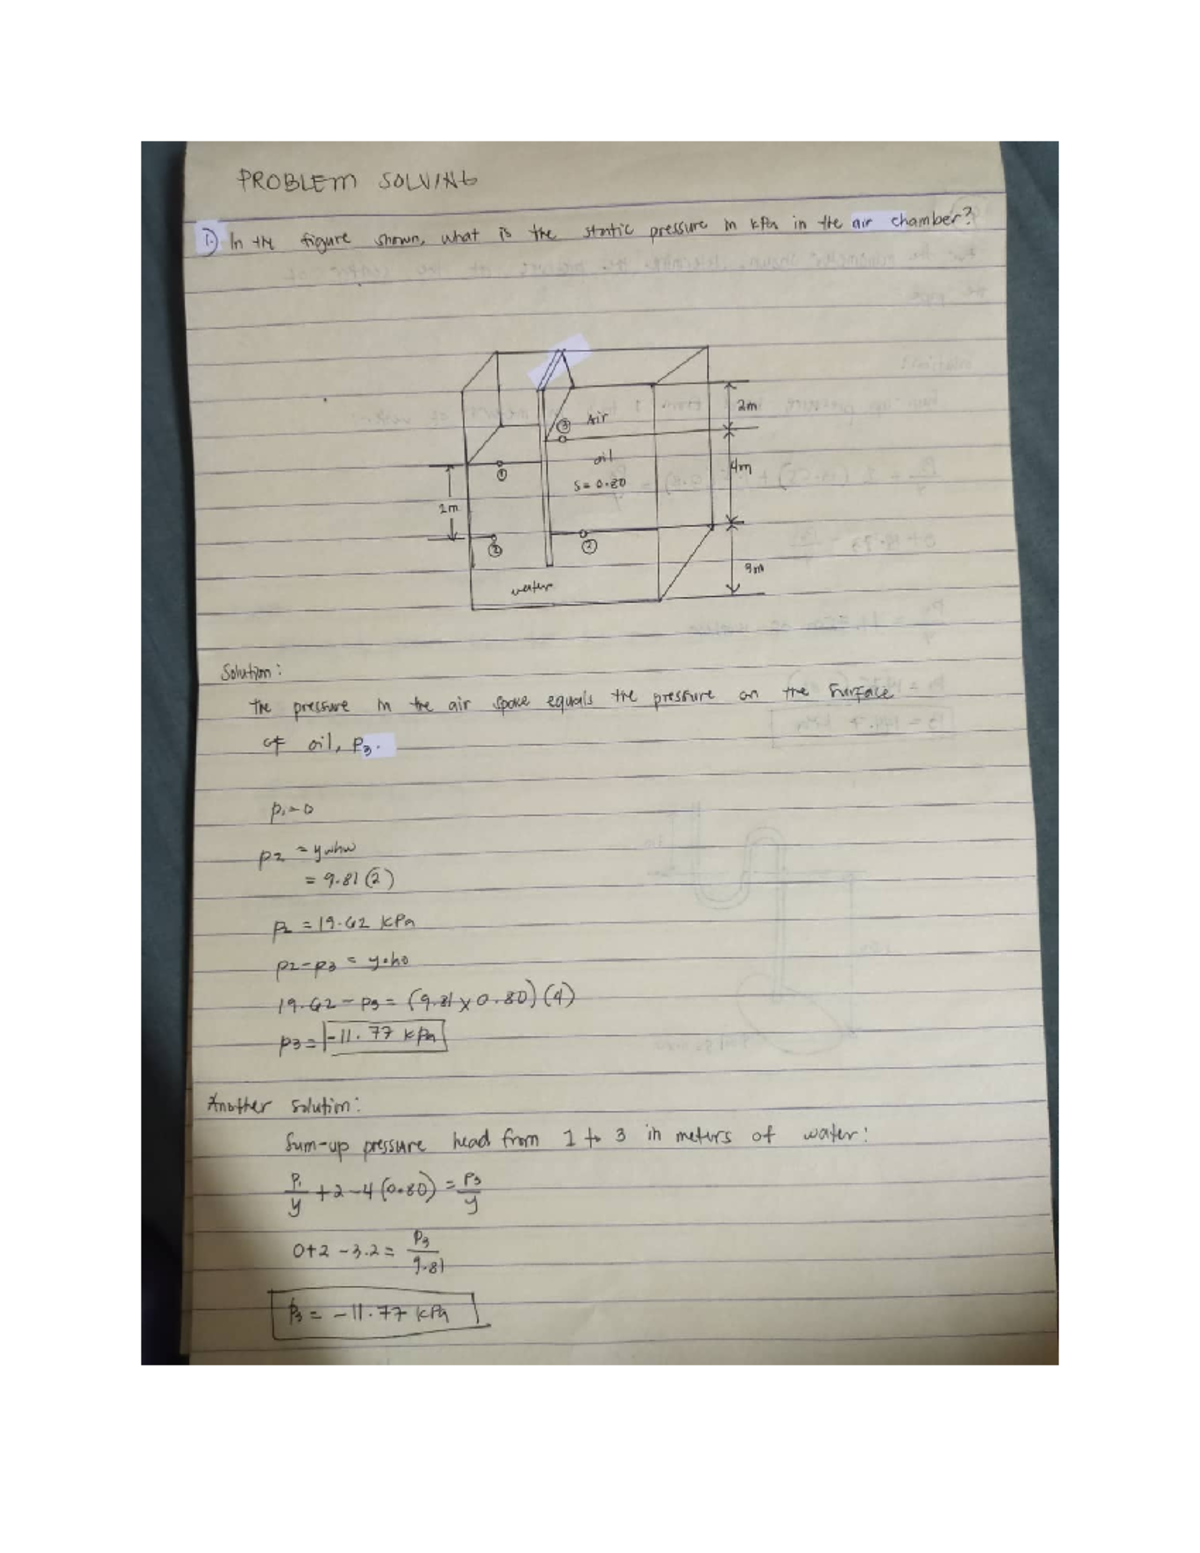 PROBLEM SOLVING
1. In the figure shown, what is the static pressure in kPa in the air chamber?
2m
③ Air
oil
4m
①
S = 0.80
2m
②
②
water
9m
Solution:
The pressure in the air space equals the pressure on the surface
of oil, P3.
p1 = 0
p2 = ywhw
= 9.81(2)
p2 = 19.62 kPa
p2 - p3 = yoho
19.62 - p3 = (9.81 x 0.80)(4)
p3 = -11.77 kPa
Another Solution:
Sum-up pressure head from 1 to 3 in meters of water:
P1/y + 2 - 4(0.80) = P3/y
0 + 2 - 3.2 = P3/9.81
P3 = -11.77 kPa